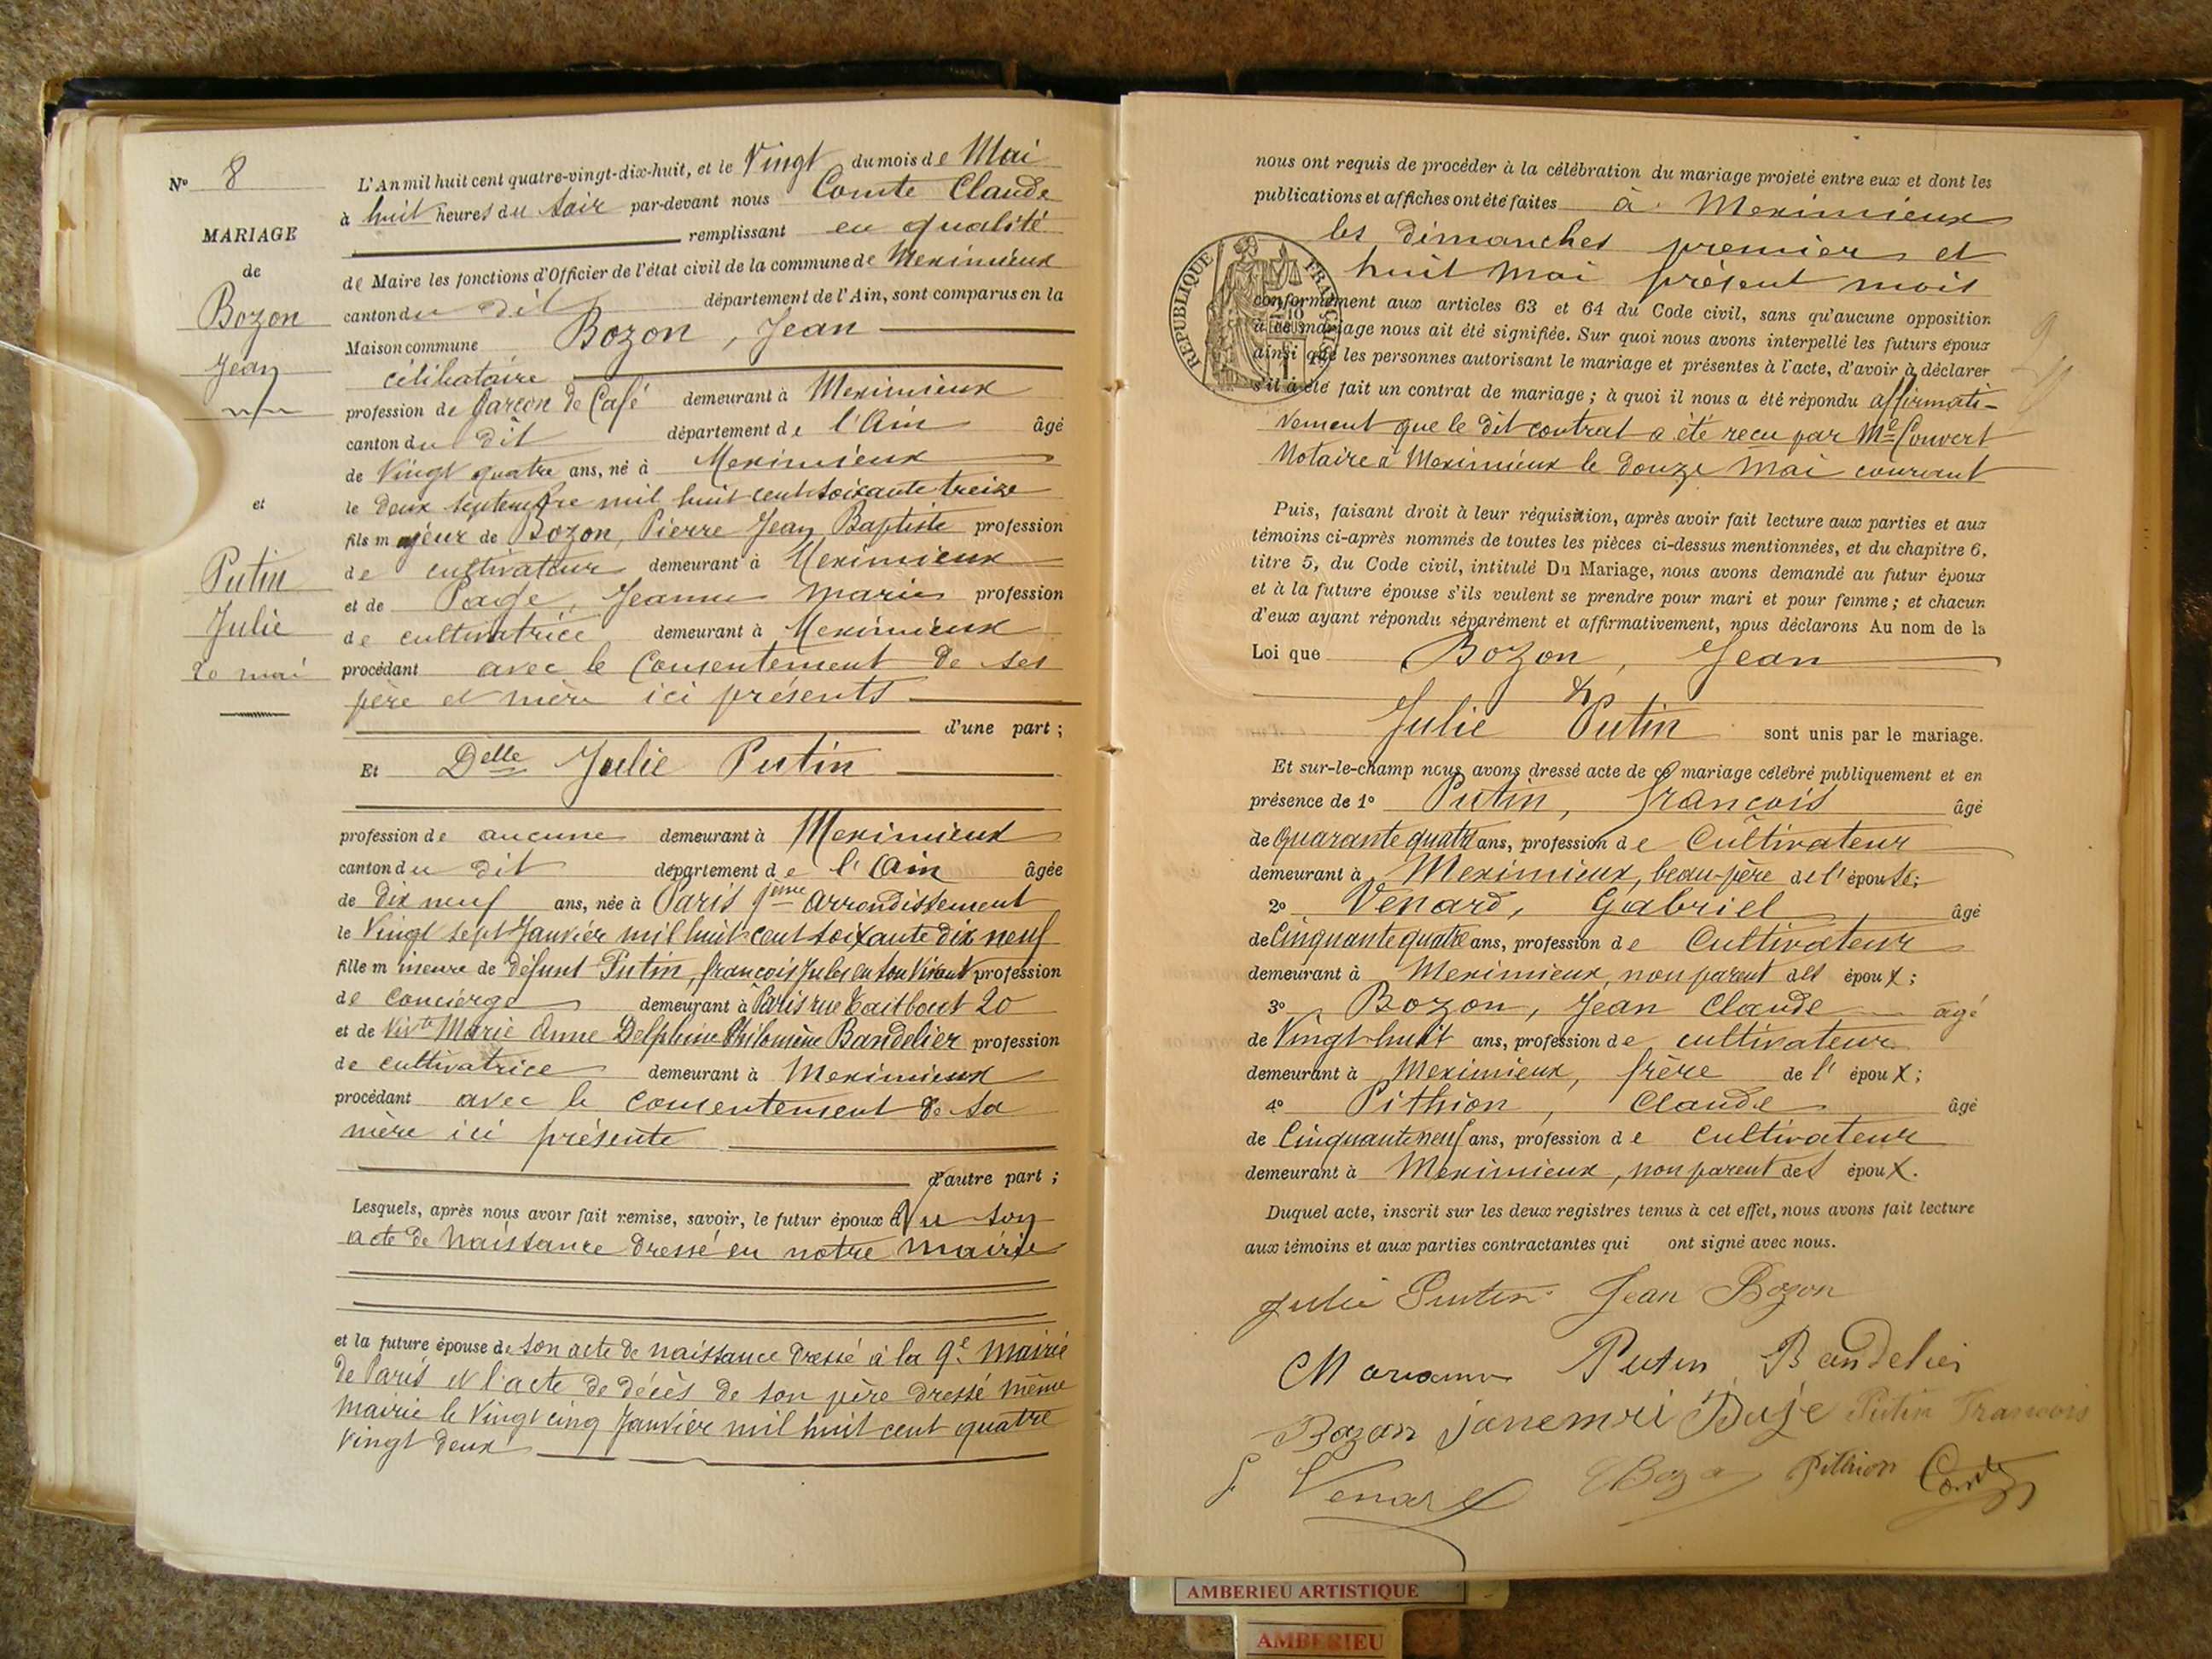 N° 8
MARIAGE
de
Bozon
Jean
et
Putin
Julie
20 mai
L'An mil huit cent quatre-vingt-dix-huit, et le Vingt du mois de Mai
à huit heures du soir par-devant nous Comte Claude
remplissant en qualité
de Maire les fonctions d'Officier de l'état civil de la commune de Meximieux
canton du dit département de l'Ain, sont comparus en la
Maison commune Bozon, Jean
célibataire
profession de Garçon de Café demeurant à Meximieux
canton du dit département de l'Ain âgé
de Vingt quatre ans, né à Meximieux
le deux septembre mil huit cent soixante treize
fils majeur de Bozon, Pierre Jean Baptiste profession
de cultivateur demeurant à Meximieux
et de Page, Jeanne Marie profession
de cultivatrice demeurant à Meximieux
procédant avec le consentement de ses
père et mère ici présents
d'une part ;
Et Delle Julie Putin
profession de aucune demeurant à Meximieux
canton du dit département de l'Ain âgée
de Dix neuf ans, née à Paris 9eme arrondissement
le Vingt sept Janvier mil huit cent soixante dix neuf
fille mineure de défunt Putin, françois Jules en son vivant profession
de concierge demeurant à Paris rue Taitbout 20
et de Vivte Marie Anne Delphine Philomène Bandelier profession
de cultivatrice demeurant à Meximieux
procédant avec le consentement de sa
mère ici présente
d'autre part ;
Lesquels, après nous avoir fait remise, savoir, le futur époux du son
acte de naissance dressé en notre mairie
et la future épouse de son acte de naissance dressé à la 9e mairie
de Paris et l'acte de décès de son père dressé même
mairie le Vingt cinq Janvier mil huit cent quatre
vingt deux
nous ont requis de procéder à la célébration du mariage projeté entre eux et dont les
publications et affiches ont été faites à Meximieux
les dimanches premier et
huit Mai présent mois
RÉPUBLIQUE FRANÇAISE
conformément aux articles 63 et 64 du Code civil, sans qu'aucune opposition
à ce mariage nous ait été signifiée. Sur quoi nous avons interpellé les futurs époux
ainsi que les personnes autorisant le mariage et présentes à l'acte, d'avoir à déclarer
s'il a été fait un contrat de mariage ; à quoi il nous a été répondu affirmati-
vement que le dit contrat a été recu par Me Convert
Notaire à Meximieux le douze Mai courant
Puis, faisant droit à leur réquisition, après avoir fait lecture aux parties et aux
témoins ci-après nommés de toutes les pièces ci-dessus mentionnées, et du chapitre 6,
titre 5, du Code civil, intitulé Du Mariage, nous avons demandé au futur époux
et à la future épouse s'ils veulent se prendre pour mari et pour femme ; et chacun
d'eux ayant répondu séparément et affirmativement, nous déclarons Au nom de la
Loi que Bozon, Jean
&
Julie Putin sont unis par le mariage.
Et sur-le-champ nous avons dressé acte de ce mariage célébré publiquement et en
présence de 1° Putin, françois âgé
de Quarante quatre ans, profession de Cultivateur
demeurant à Meximieux, beau-père de l'épouse ;
2° Venard, Gabriel, âgé
de Cinquante quatre ans, profession de Cultivateur
demeurant à Meximieux, non parent des époux ;
3° Bozon, Jean Claude âgé
de Vingt-huit ans, profession de cultivateur
demeurant à Meximieux, frère de l'époux ;
4° Pithion, Claude, âgé
de Cinquante neuf ans, profession de Cultivateur
demeurant à Meximieux, non parent des époux.
Duquel acte, inscrit sur les deux registres tenus à cet effet, nous avons fait lecture
aux témoins et aux parties contractantes qui ont signé avec nous.
Julie Putin Jean Bozon
Putin Bandelier
Bozon Putin Francois
Venard Pithion Comte
AMBERIEU ARTISTIQUE
AMBERIEU